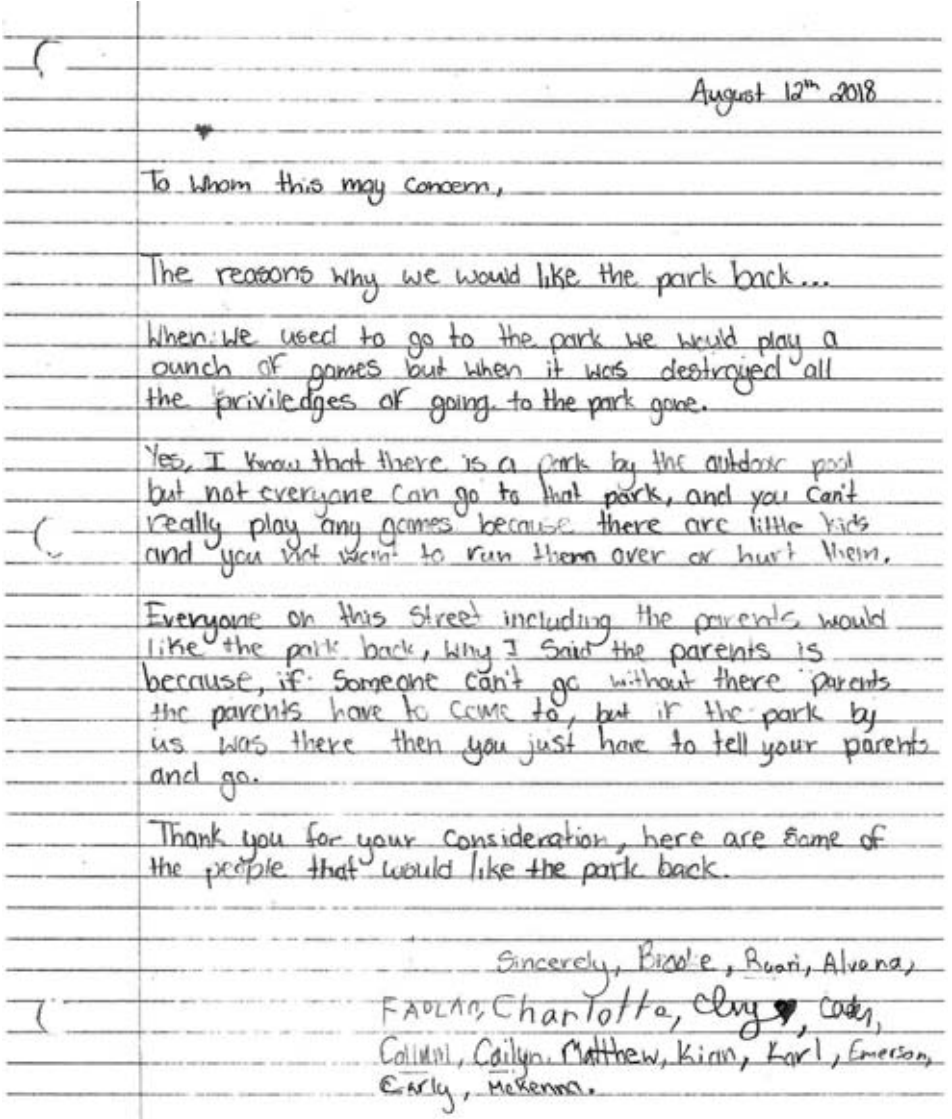 August 12th 2018
To Whom this may Concern,
The reasons why we would like the park back...
When we used to go to the park we would play a
bunch of games but when it was destroyed all
the priviledges of going to the park gone.
Yes, I know that there is a park by the outdoor pool
but not everyone can go to that park, and you can't
really play any games because there are little kids
and you not want to run them over or hurt them.
Everyone on this Street including the parents would
like the park back, why I said the parents is
because, if someone can't go without there parents
the parents have to come to, but if the park by
us was there then you just have to tell your parents
and go.
Thank you for your consideration, here are some of
the people that would like the park back.
Sincerely, Brooke, Ruari, Alvana,
FAOLAN, Charlotte,
Cailyn, Matthew, Kian, Karl, Emerson,
Carly, McKenna.